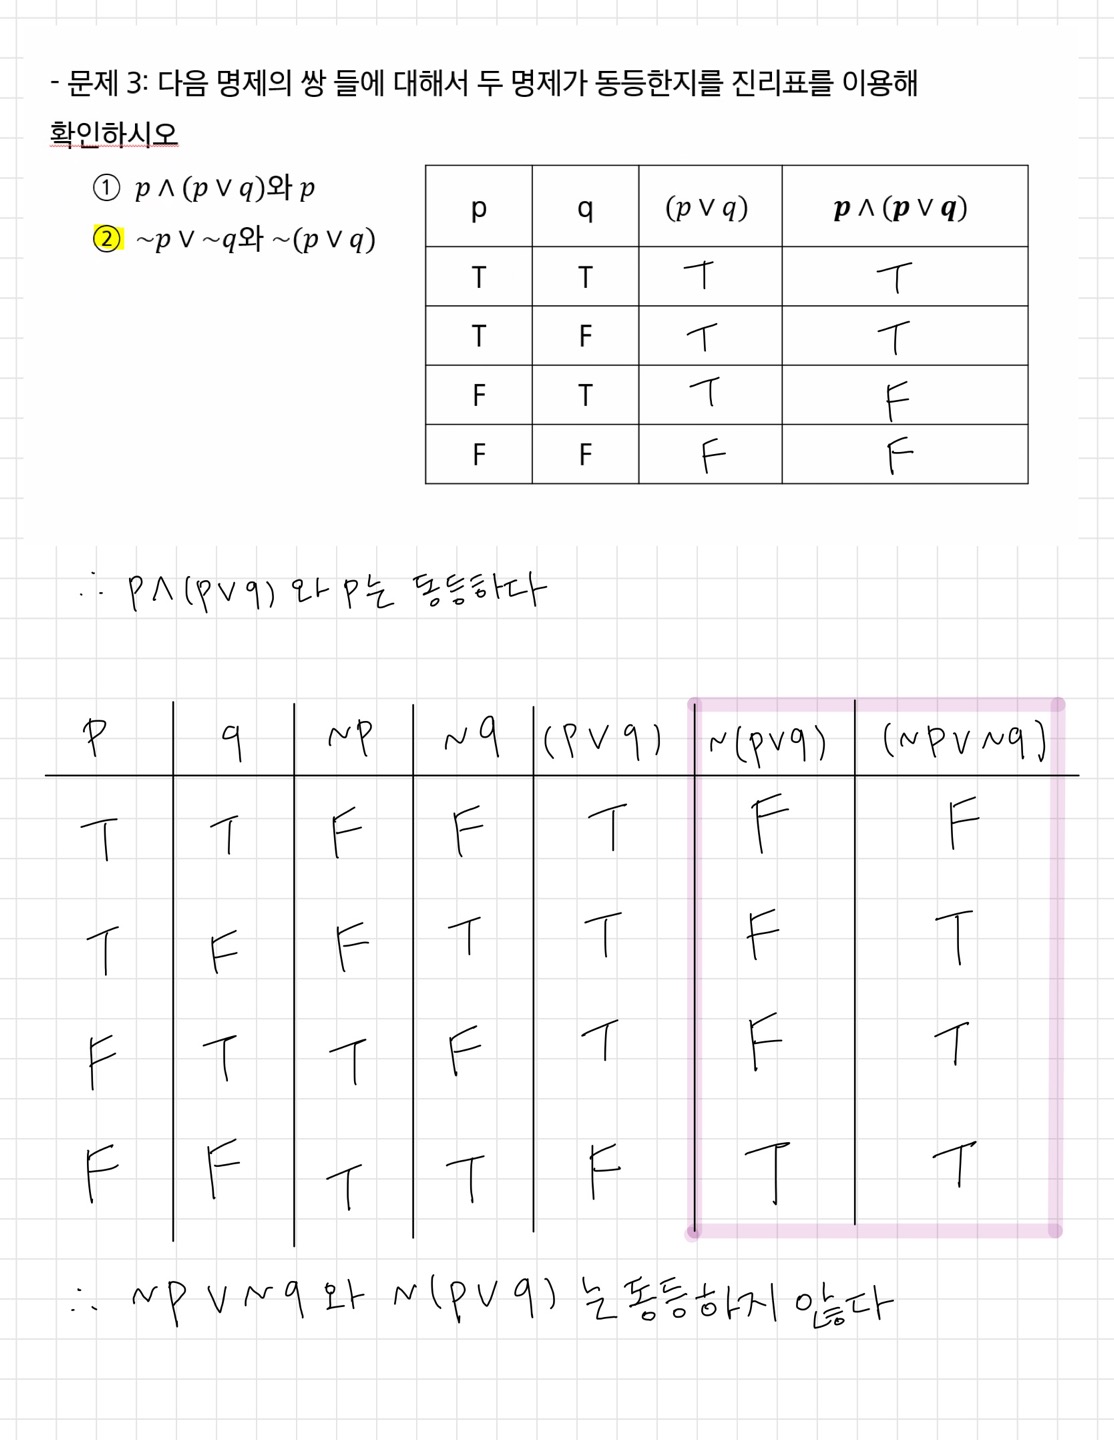 - 문제 3: 다음 명제의 쌍 들에 대해서 두 명제가 동등한지를 진리표를 이용해
확인하시오
① p ∧ (p ∨ q)와 p
② ~p ∨ ~q와 ~(p ∨ q)
p q (p ∨ q) p ∧ (p ∨ q)
T T T T
T F T T
F T T F
F F F F
∴ p∧(p∨q) 와 p는 동등하다
p q ~p ~q (p∨q) ~(p∨q) (~p∨~q)
T T F F T F F
T F F T T F T
F T T F T F T
F F T T F T T
∴ ~p∨~q 와 ~(p∨q) 는 동등하지 않다